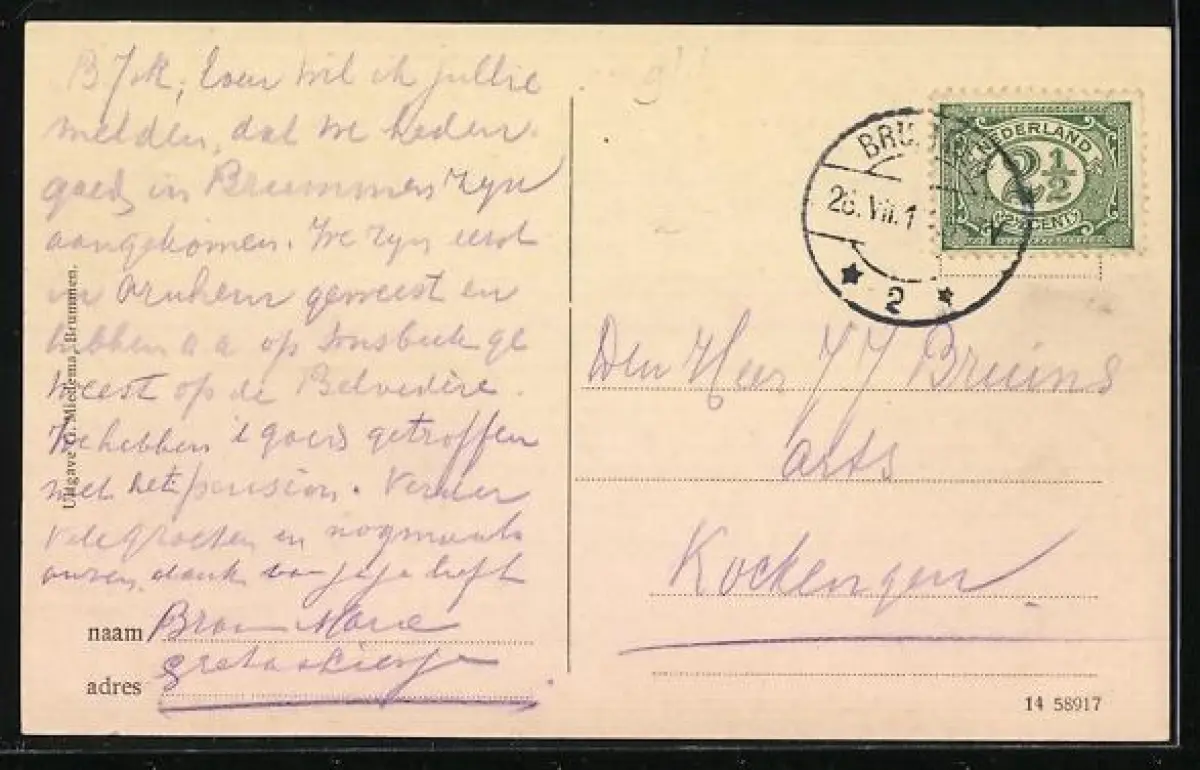 even wil ik jullie
melden, dat we heden
goed in Brummen zyn
aangekomen. We zyn eerst
in Arnhem geweest en
hebben op Sonsbeek ge
weest op de Belvedère.
We hebben 't goed getroffen
met het pension. Verder
vele groeten en nogmaals
dank
naam Bram Marie
adres Greta
Uitgave G. Miedema, Brummen.
BRUMMEN
26. VII. 1
2
NEDERLAND
2½
2½ CENT
Den Heer J J Bruins
arts
Kockengen.
14 58917